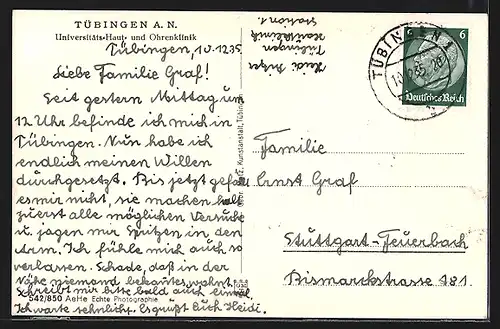 TÜBINGEN A. N.
Universitäts-Haut- und Ohrenklinik
Tübingen, 10.12.35.
Liebe Familie Graf!
Seit gestern Mittag um
12 Uhr befinde ich mich in
Tübingen. Nun habe ich
endlich meinen Willen
durchgesetzt. Bis jetzt gefällt
es mir nicht, sie machen halt
zuerst alle möglichen Versuche
u. jagen mir Spritzen in den
Arm. Ich fühle mich auch so
verlassen. Schade, daß in der
Nähe niemand bekanntes wohnt.
Schreibt mir bitte bald auch einmal.
Ich warte sehnlichst. Es grüßt Euch Heidi.
542/850 AeHe Echte Photographie
Kunstanstalt, Tübingen
Heidi
Tübingen
Hautklinik
Station 1
TÜBINGEN 1
6 6
Deutsches Reich
Familie
Ernst Graf
Stuttgart-Feuerbach
Bismarckstrasse 181.